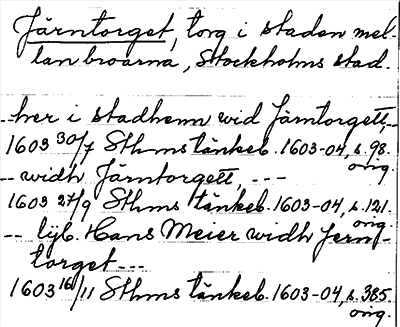 Järntorget, torg i staden mel-
lan broarna, Stockholms stad.
-- her i stadhenn wid Järntorgett, --
1603 30/7 Sthms tänkeb. 1603-04, s. 98.
orig.
-- widh Järntorgett, ---
1603 27/9 Sthms tänkeb. 1603-04, s. 121.
orig.
-- Hans Meier widh Jern-
torget ---
1603 16/11 Sthms tänkeb. 1603-04, s. 385.
orig.